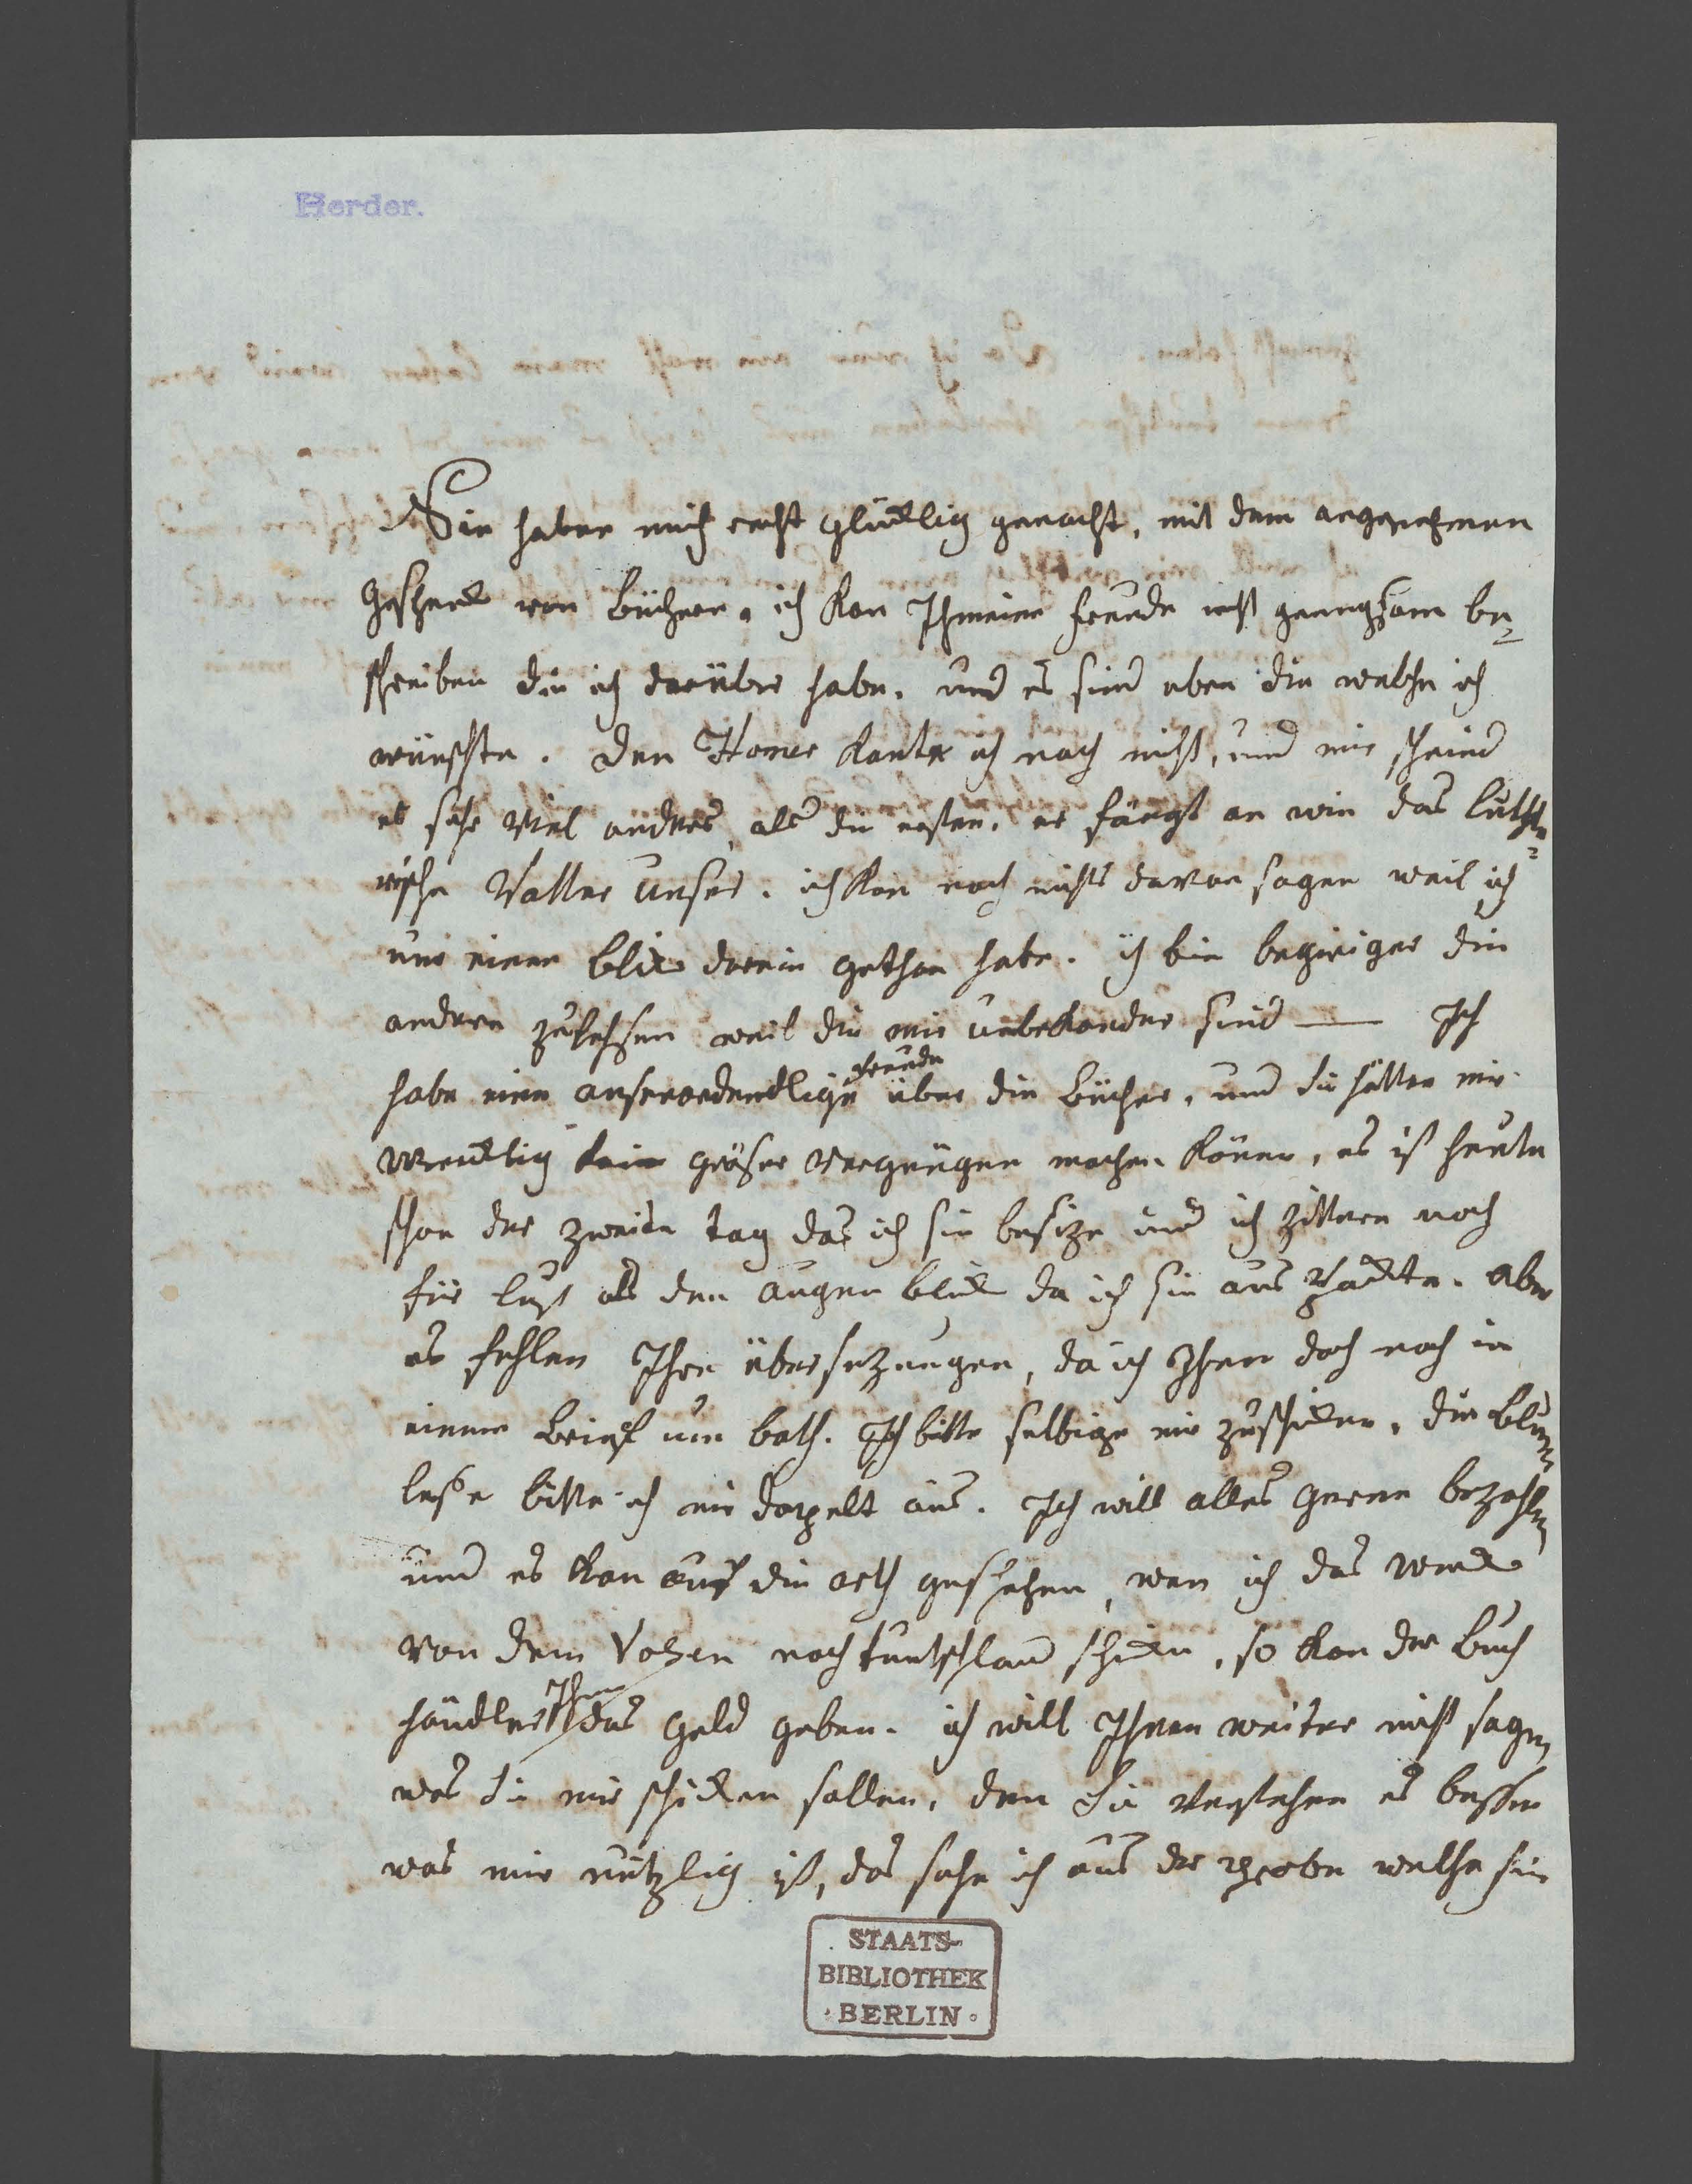 Herder.
Sie haben mich recht glücklig gemacht, mit dem angenehmen
Geschenck von Bücher. ich kan Ihn meine freude nicht genugsam be=
schreiben die ich darüber habe. und es sind eben die welche ich
wünschte. den Homer kante ich noch nicht, und mir scheind
es sehr viel anders, als die ersten. er fängt an wie das luthe=
rische Vatter unser. ich kan noch nichts davon sagen weil ich
nur einen blick darein gethan habe. ich bin begieriger die
andren zu lessen weil die mir unbekander sind — Ich
habe eine ausserordendlige freude über die Bücher, und sie hätten mir
wircklig kein gröser vergnügen machen können, es ist heute
schon der zweite tag das ich sie besize und ich zittere noch
für lust als den augen blick da ich sie aus packte. aber
es fehlen Ihre übersezungen, da ich Ihnen doch noch in
einem Brief um bath. Ich bitte selbige mir zuschicken, die Blum=
lesse bitte ich mir doppelt aus. Ich will alles gerne bezahlen
und es kan auf die arth geschehen, wen ich das werck
von dem Vohen nach teutschland schicke, so kan der Buch
händler Ihnen das geld geben. ich will Ihnen weiter nicht sagen
was sie mir schicken sollen, den Sie verstehen es besser
was mir nützlig ist, das sehe ich aus der probe welche sie
STAATS-
BIBLIOTHEK
· BERLIN ·